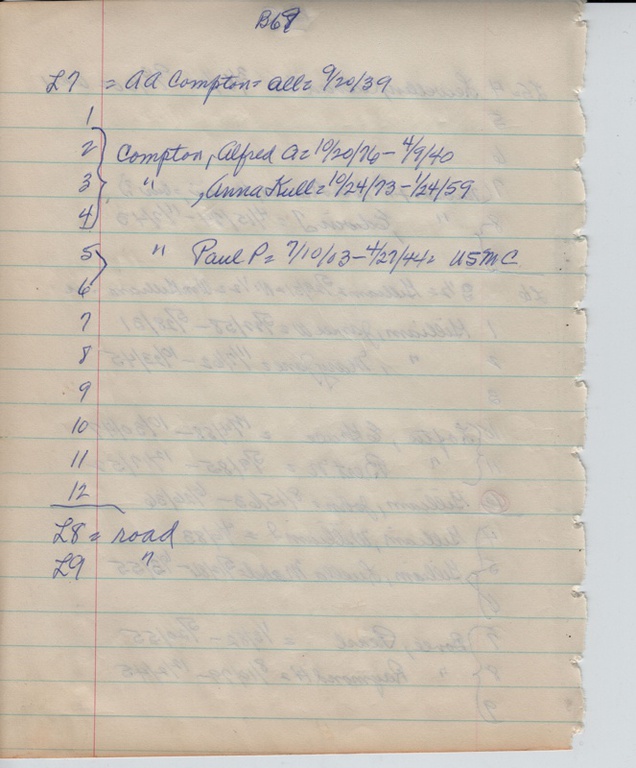 B67
L7 = AA Compton = all = 9/20/39
1
2 Compton, Alfred A = 10/20/76 - 4/9/40
3 " , Anna Kull = 10/24/73 - 1/24/59
4
5 " Paul P = 7/10/03 - 4/27/44 = USMC
6
7
8
9
10
11
12
L8 = road
L9 "